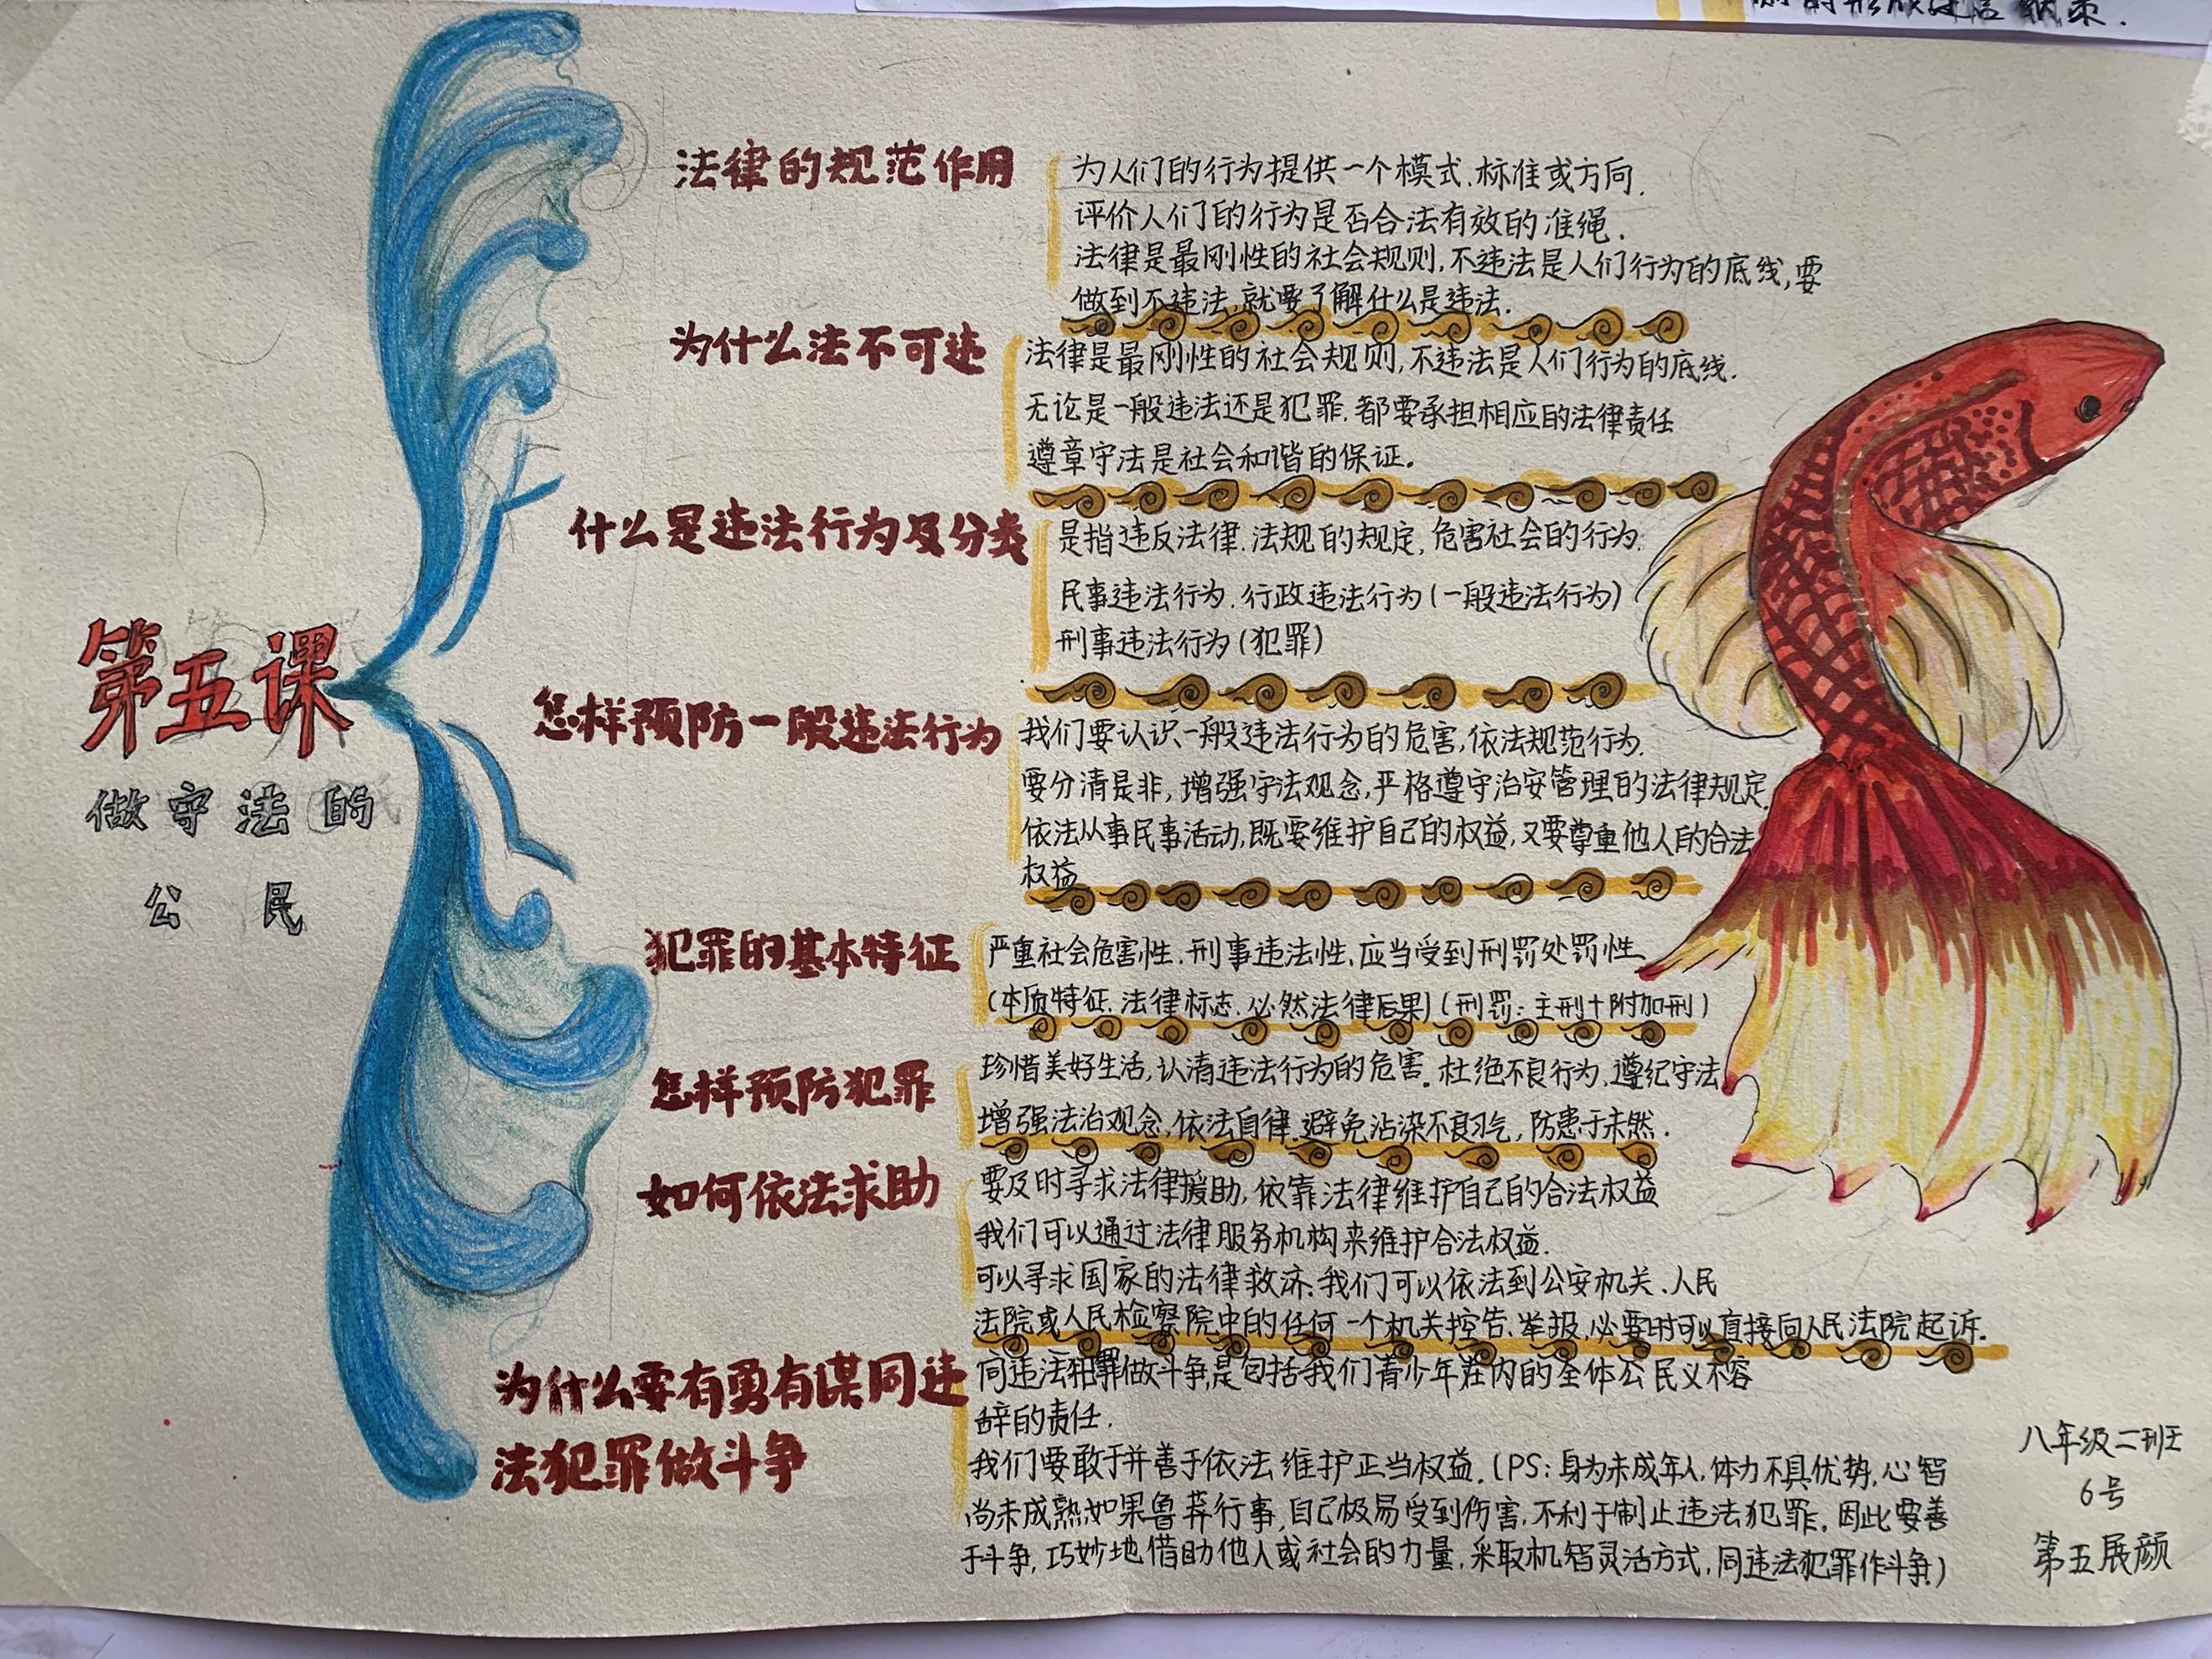 第五课
做守法的
公民
法律的规范作用
为人们的行为提供一个模式、标准或方向.
评价人们的行为是否合法有效的准绳.
法律是最刚性的社会规则,不违法是人们行为的底线,要
做到不违法,就要了解什么是违法.
为什么法不可违
法律是最刚性的社会规则,不违法是人们行为的底线.
无论是一般违法还是犯罪.都要承担相应的法律责任
遵章守法是社会和谐的保证.
什么是违法行为及分类
是指违反法律.法规的规定,危害社会的行为.
民事违法行为.行政违法行为(一般违法行为)
刑事违法行为(犯罪)
怎样预防一般违法行为
我们要认识一般违法行为的危害,依法规范行为.
要分清是非,增强守法观念,严格遵守治安管理的法律规定.
依法从事民事活动,既要维护自己的权益,又要尊重他人的合法
权益
犯罪的基本特征
严重社会危害性.刑事违法性.应当受到刑罚处罚性
(本质特征.法律标志.必然法律后果)(刑罚:主刑+附加刑)
怎样预防犯罪
珍惜美好生活,认清违法行为的危害.杜绝不良行为.遵纪守法
增强法治观念,依法自律.避免沾染不良习气,防患于未然.
如何依法求助
要及时寻求法律援助,依靠法律维护自己的合法权益
我们可以通过法律服务机构来维护合法权益.
可以寻求国家的法律救济:我们可以依法到公安机关、人民
法院或人民检察院中的任何一个机关控告.举报,必要时可以直接向人民法院起诉.
为什么要有勇有谋同违
法犯罪做斗争
同违法犯罪做斗争,是包括我们青少年在内的全体公民义不容
辞的责任.
我们要敢于并善于依法维护正当权益.(PS:身为未成年人,体力不具优势,心智
尚未成熟如果鲁莽行事,自己极易受到伤害,不利于制止违法犯罪.因此要善
于斗争,巧妙地借助他人或社会的力量,采取机智灵活方式,同违法犯罪作斗争)
八年级二班
6号
第五展颜